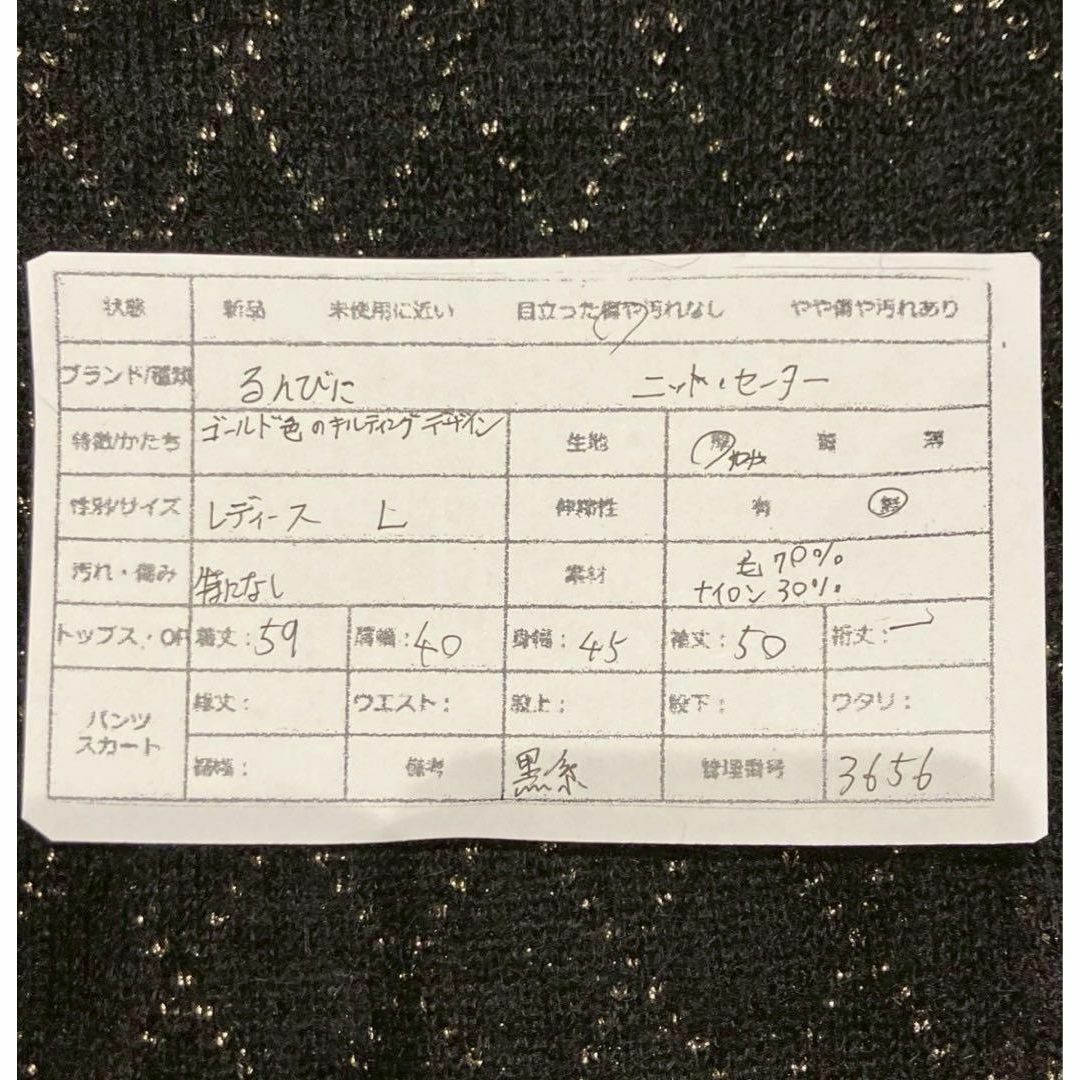 状態 新品 未使用に近い 目立った傷や汚れなし やや傷や汚れあり
ブランド/種類 るんびに ニット、セーター
特徴/かたち ゴールド色のキルティングデザイン 生地 厚 普 薄
性別/サイズ レディース L 伸縮性 有 無
汚れ・傷み 特になし 素材 毛70%
ナイロン30%
トップス・OP 着丈:59 肩幅:40 身幅:45 袖丈:50 裄丈:
パンツ
スカート
総丈: ウエスト: 股上: 股下: ワタリ:
裾幅: 備考 黒系 管理番号 3656